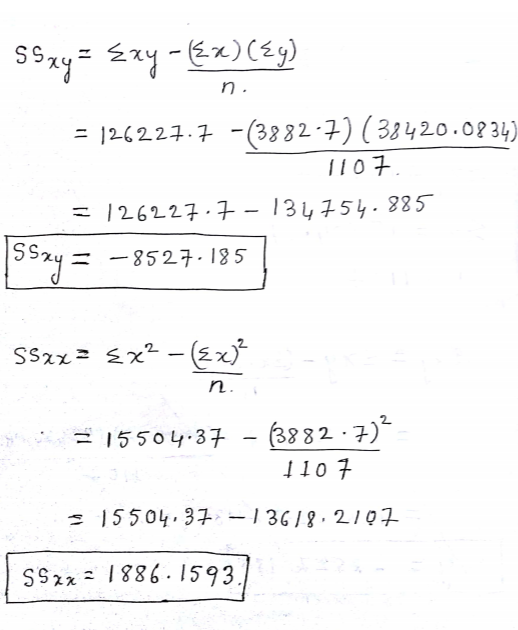 SSxy = Σxy - (Σx)(Σy)
n.
= 126227.7 - (3882.7)(38420.0834)
1107.
= 126227.7 - 134754.885
SSxy = -8527.185
SSxx = Σx² - (Σx)²
n.
= 15504.37 - (3882.7)²
1107
= 15504.37 - 13618.2107
SSxx = 1886.1593.